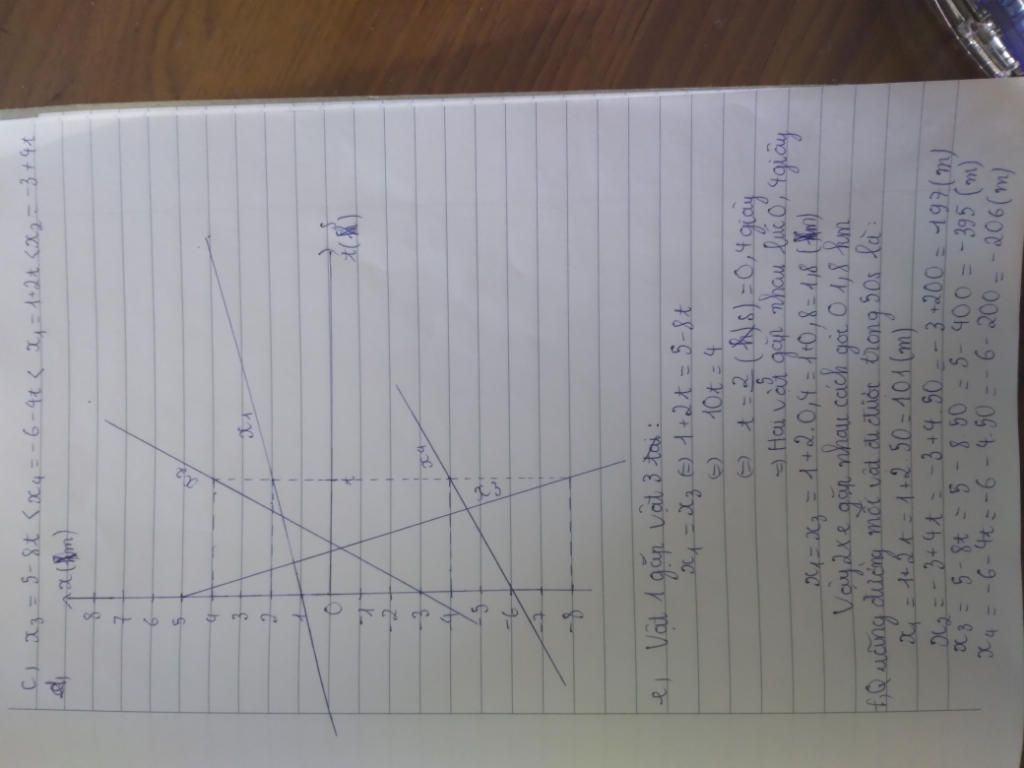 c) x3 = 5-8t < x4 = -6-4t < x1 = 1+2t < x2 = -3+4t
d)
x (m)
8
7
6
5
4
3
2
1
0
-1
-2
-3
-4
-5
-6
-7
-8
x2
x1
x4
x3
1
t(s)
e) Vật 1 gặp vật 3 tại:
x1 = x3 ⇔ 1+2t = 5-8t
⇔ 10t = 4
⇔ t = 2/5 (s) = 0,4 giây
⇒ Hai vật gặp nhau lúc 0,4 giây
x1 = x3 = 1+2.0,4 = 1+0,8 = 1,8 (m)
Vậy 2 xe gặp nhau cách gốc O 1,8 km
f, Quãng đường mỗi vật đi được trong 50s là:
x1 = 1+2t = 1+2.50 = 101 (m)
x2 = -3+4t = -3+4.50 = -3+200 = 197 (m)
x3 = 5-8t = 5-8.50 = 5-400 = -395 (m)
x4 = -6-4t = -6-4.50 = -6-200 = -206 (m)